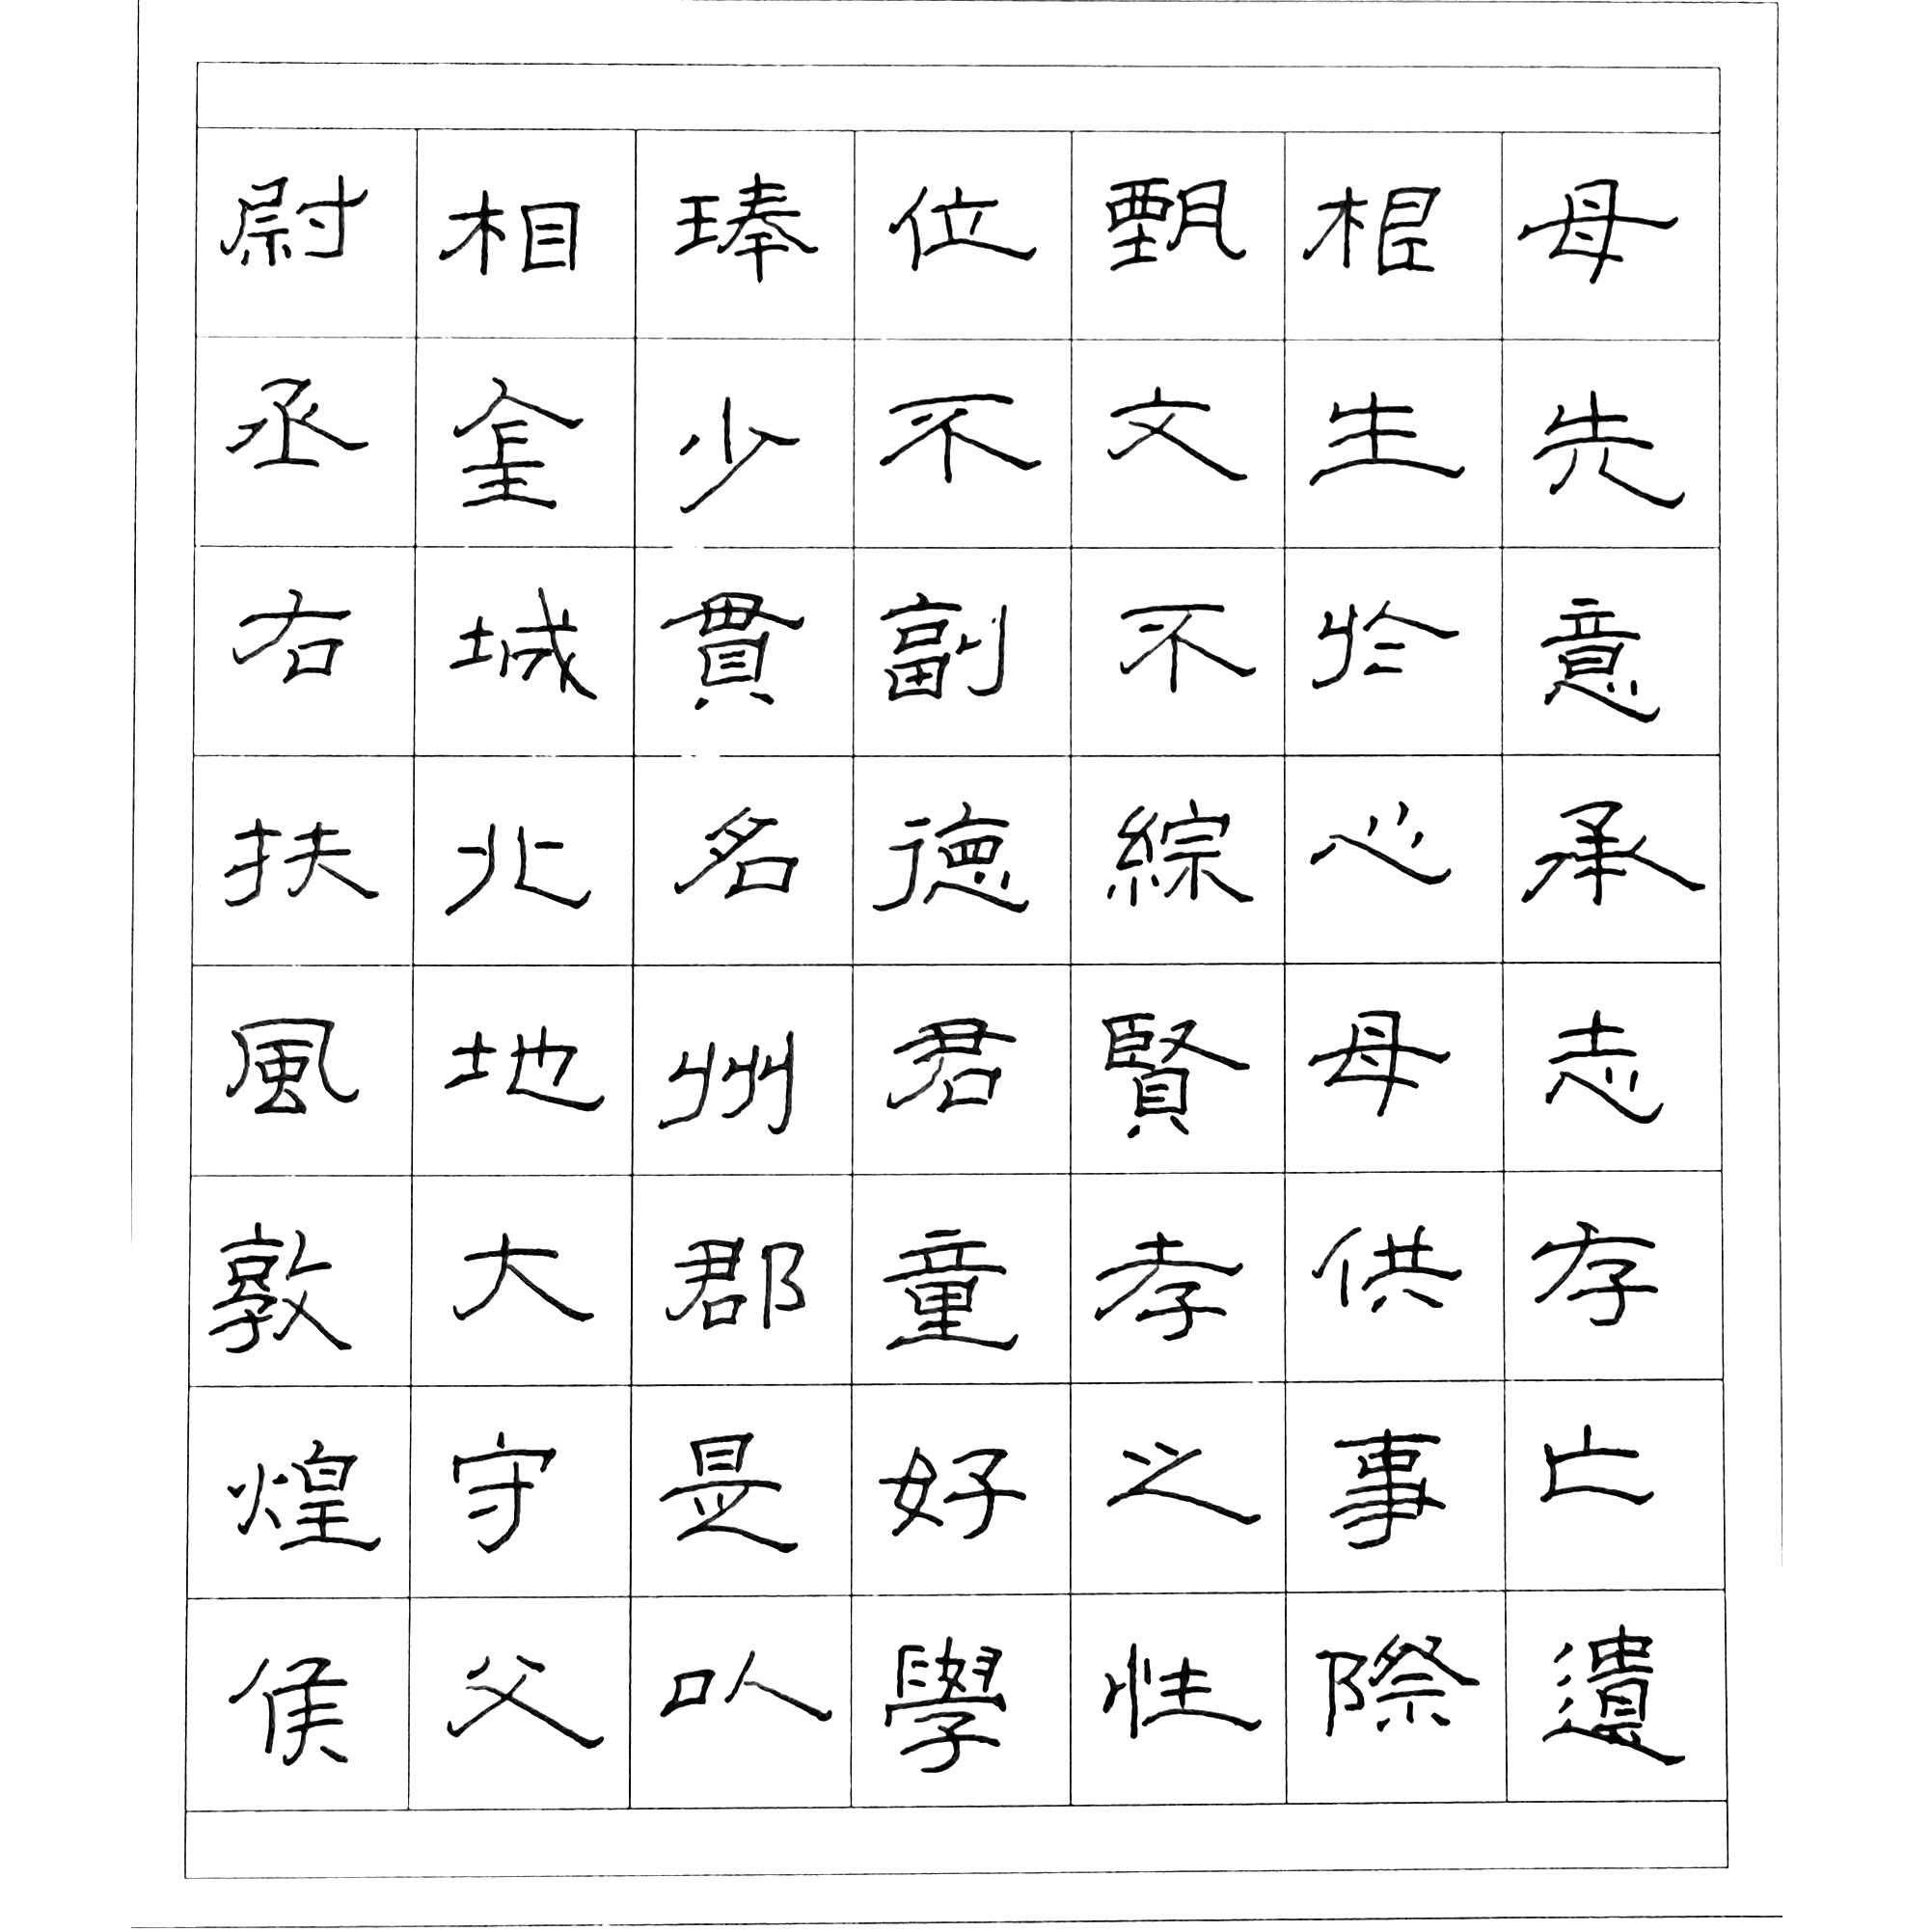 母先意承志存亡遺
根生於心母供事際
甄文不綜賢孝之性
位不副德君童好學
琫少貫名州郡是以
相金城北地大守父
尉丞右扶風敦煌侯